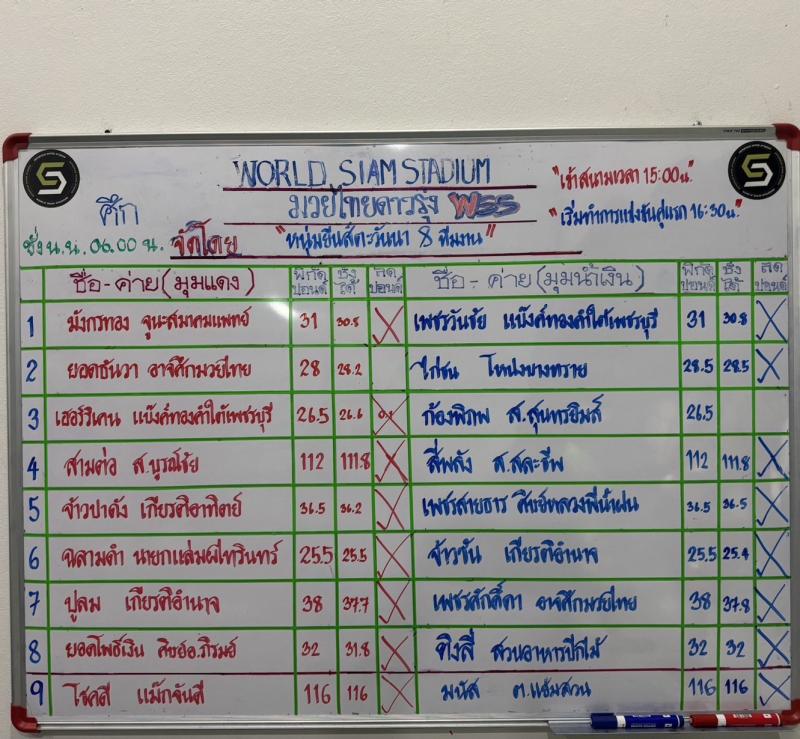 WORLD SIAM STADIUM
"เข้าสนามเวลา 15:00น."
ศึก มวยไทยดาวรุ่ง WSS
"เริ่มทำการแข่งขันคู่แรก 16:30น."
ชั่ง น.น. 06.00 น. จัดโดย "หนุ่มยีนส์ตะวันนา 8 ทีมงาน"
ชื่อ-ค่าย(มุมแดง) พิกัดปอนด์ ชั่งได้ ลดปอนด์ ชื่อ - ค่าย (มุมน้ำเงิน) พิกัดปอนด์ ชั่งได้ ลดปอนด์
1 มังกรทอง จูนะสมาคมแพทย์ 31 30.8 X เพชรวันชัย แบ๊งค์ทองคำใต้เพชรบุรี 31 30.8 X
2 ยอดธันวา อาจศึกมวยไทย 28 28.2 ไก่ชน โหน่งบางทราย 28.5 28.5 X
3 เฮอร์ริเคน แบ๊งค์ทองคำใต้เพชรบุรี 26.5 26.6 0.1 ก้องพิภพ ส.สุนทรยิมส์ 26.5
4 สามต่อ ส.บูรณ์ชัย 112 111.8 X สี่พลัง ส.สละชีพ 112 111.8 X
5 จ้าวปาดัง เกียรติอาทิตย์ 36.5 36.2 X เพชรสายธาร ศิษย์หลวงพี่น้ำฝน 36.5 36.5 X
6 ฉลามดำ นายกแหลมผไทรินทร์ 25.5 25.5 X จ้าวซัน เกียรติอำนาจ 25.5 25.4 X
7 ปูลม เกียรติอำนาจ 38 37.7 X เพชรศักดิ์ดา อาจศึกมวยไทย 38 37.8 X
8 ยอดโพธิ์เงิน ศิษย์อ.ภิรมย์ 32 31.8 X ติงลี่ สวนอาหารปีกไม้ 32 32 X
9 โชคดี แม๊กจันดี 116 116 X มนัส ต.แย้มสวน 116 116 X